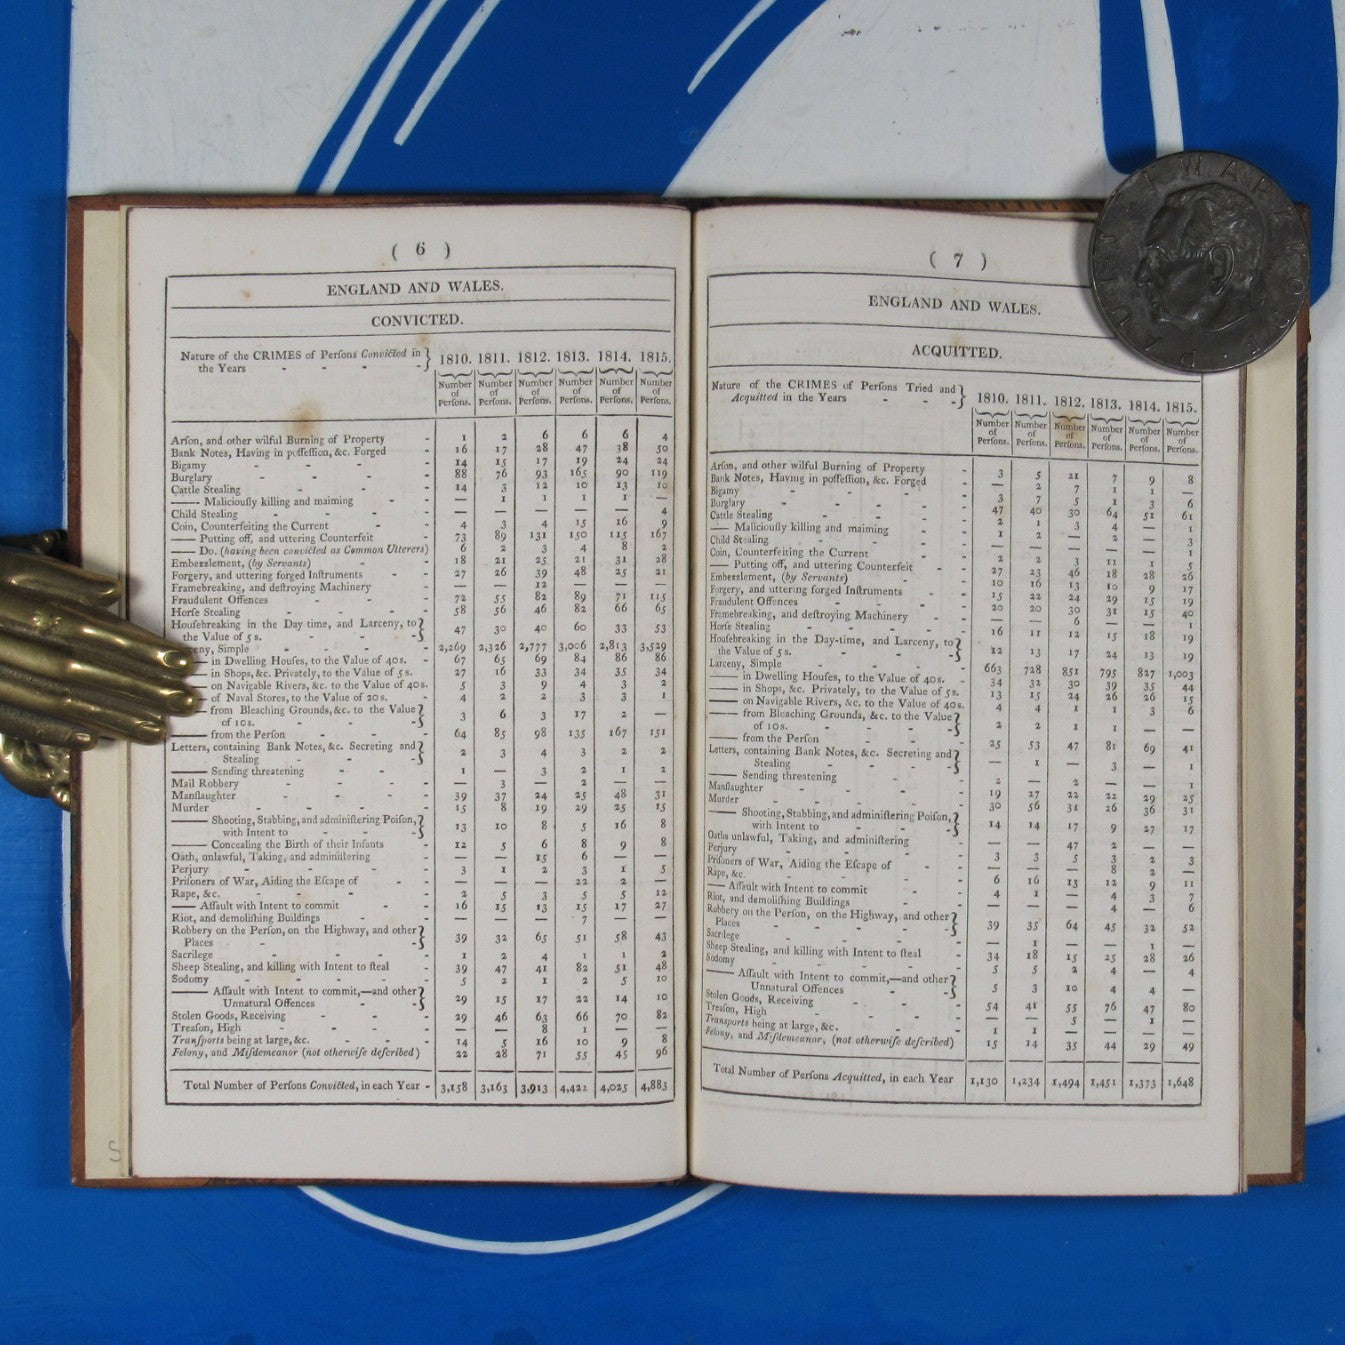 ( 6 )
ENGLAND AND WALES.
CONVICTED.
Nature of the CRIMES of Perſons Convicted in } 1810. 1811. 1812. 1813. 1814. 1815.
the Years - - - -
Number Number Number Number Number Number
of of of of of of
Perſons. Perſons. Perſons. Perſons. Perſons. Perſons.
Arſon, and other wilful Burning of Property - 1 2 6 6 6 4
Bank Notes, Having in poſſeſſion, &c. Forged - 16 17 28 47 38 50
Bigamy - - - - 14 15 17 19 24 24
Burglary - - - - 88 76 93 165 90 119
Cattle Stealing - - - - 14 3 12 10 13 10
—— Maliciouſly killing and maiming - - — 1 1 1 1 —
Child Stealing - - - - — — — — — 4
Coin, Counterfeiting the Current - - 4 3 4 15 16 9
—— Putting off, and uttering Counterfeit - 73 89 131 150 115 167
—— Do. (having been convicted as Common Utterers) 6 2 3 4 8 2
Embezzlement, (by Servants) - - - 18 21 25 21 31 28
Forgery, and uttering forged Inſtruments - - 27 26 39 48 25 21
Framebreaking, and deſtroying Machinery - — — 12 — — —
Fraudulent Offences - - - 72 55 82 89 71 115
Horſe Stealing - - - - 58 56 46 82 66 65
Houſebreaking in the Day time, and Larceny, to }
the Value of 5s. - - - - 47 30 40 60 33 53
eny, Simple - - - - 2,269 2,326 2,777 3,006 2,813 3,529
—— in Dwelling Houſes, to the Value of 40s. - 67 65 69 84 86 86
—— in Shops, &c. Privately, to the Value of 5s. 27 16 33 34 35 34
—— on Navigable Rivers, &c. to the Value of 40s. 5 3 9 4 3 2
— of Naval Stores, to the Value of 20s. - 4 2 2 3 3 1
—— from Bleaching Grounds, &c. to the Value }
of 10s. - - - - 3 6 3 17 2 —
—— from the Perſon - - - 64 85 98 135 167 151
Letters, containing Bank Notes, &c. Secreting and }
Stealing - - - - 2 3 4 3 2 2
—— Sending threatening - - - 1 — 3 2 1 2
Mail Robbery - - - - — 3 — 2 — —
Manſlaughter - - - - 39 37 24 25 48 31
Murder - - - - 15 8 19 29 25 15
—— Shooting, Stabbing, and adminiſtering Poiſon, }
with Intent to - - - 13 10 8 5 16 8
—— Concealing the Birth of their Infants - 12 5 6 8 9 8
Oath, unlawful, Taking, and adminiſtering - — — 15 6 — —
Perjury - - - - 3 1 2 3 1 5
Priſoners of War, Aiding the Eſcape of - - — — — 22 2 —
Rape, &c. - - - - 2 5 3 5 5 12
—— Aſſault with Intent to commit - - 16 15 13 15 17 27
Riot, and demoliſhing Buildings - - — — — 7 — —
Robbery on the Perſon, on the Highway, and other }
Places - - - - 39 32 65 51 58 43
Sacrilege - - - - 1 2 4 1 1 2
Sheep Stealing, and killing with Intent to ſteal - 39 47 41 82 51 48
Sodomy - - - - 5 2 1 2 5 10
—— Aſſault with Intent to commit,—and other }
Unnatural Offences - - - 29 15 17 22 14 10
Stolen Goods, Receiving - - - 29 46 63 66 70 82
Treaſon, High - - - - — — 8 1 — —
Tranſports being at large, &c. - - - 14 5 16 10 9 8
Felony, and Miſdemeanor (not otherwiſe deſcribed) 22 28 71 55 45 96
Total Number of Perſons Convicted, in each Year - 3,158 3,163 3,913 4,422 4,025 4,883
( 7 )
ENGLAND AND WALES.
ACQUITTED.
Nature of the CRIMES of Perſons Tried and }
Acquitted in the Years - - - 1810. 1811. 1812. 1813. 1814. 1815.
Number Number Number Number Number Number
of of of of of of
Perſons. Perſons. Perſons. Perſons. Perſons. Perſons.
Arſon, and other wilful Burning of Property - 3 5 21 7 9 8
Bank Notes, Having in poſſeſſion, &c. Forged - — 2 7 1 1 —
Bigamy - - - - 3 7 5 1 3 6
Burglary - - - - 47 40 30 64 51 61
Cattle Stealing - - - - 2 1 3 4 — 1
—— Maliciouſly killing and maiming - - 1 2 — 2 — 3
Child Stealing - - - - — — — — — 1
Coin, Counterfeiting the Current - - 2 2 3 11 1 5
—— Putting off, and uttering Counterfeit - - 27 23 46 18 28 26
Embezzlement, (by Servants) - - 10 16 13 10 9 17
Forgery, and uttering forged Inſtruments - 15 22 24 29 15 19
Fraudulent Offences - - - 20 20 30 31 15 40
Framebreaking, and deſtroying Machinery - — — 6 — — 1
Horſe Stealing - - - - 16 11 12 15 18 19
Houſebreaking in the Day-time, and Larceny, to }
the Value of 5s. - - - - 12 13 17 24 13 19
Larceny, Simple - - - - 663 728 851 795 827 1,003
—— in Dwelling Houſes, to the Value of 40s. - 34 32 30 39 35 44
—— in Shops, &c. Privately, to the Value of 5s. 13 15 24 26 26 15
—— on Navigable Rivers, &c. to the Value of 40s. 4 4 1 1 3 6
—— from Bleaching Grounds, &c. to the Value }
of 10s. - - - - 2 2 1 1 — —
—— from the Perſon - - - 25 53 47 81 69 41
Letters, containing Bank Notes, &c. Secreting and }
Stealing - - - - — 1 — 3 — 1
—— Sending threatening - - 2 — 2 — — 1
Manſlaughter - - - - 19 27 22 22 29 25
Murder - - - - 30 56 31 26 36 31
—— Shooting, Stabbing, and adminiſtering Poiſon, }
with Intent to - - - 14 14 17 9 27 17
Oaths unlawful, Taking, and adminiſtering - — — 47 2 — —
Perjury - - - - 3 3 5 3 2 3
Priſoners of War, Aiding the Eſcape of - - — — — 8 2 —
Rape, &c. - - - - 6 16 13 12 9 11
—— Aſſault with Intent to commit - - 4 1 — 4 3 7
Riot, and demoliſhing Buildings - - — — — 4 — 6
Robbery on the Perſon, on the Highway, and other }
Places - - - - 39 35 64 45 32 52
Sacrilege - - - - — 1 — — 1 —
Sheep Stealing, and killing with Intent to ſteal - 34 18 15 25 28 26
Sodomy - - - - 5 5 2 4 — 4
—— Aſſault with Intent to commit,—and other }
Unnatural Offences - - - 5 3 10 4 4 —
Stolen Goods, Receiving - - - 54 41 55 76 47 80
Treaſon, High - - - - — — 5 — 1 —
Tranſports being at large, &c. - - - 1 1 — — — —
Felony, and Miſdemeanor, (not otherwiſe deſcribed) 15 14 35 44 29 49
Total Number of Perſons Acquitted, in each Year 1,130 1,234 1,494 1,451 1,373 1,648